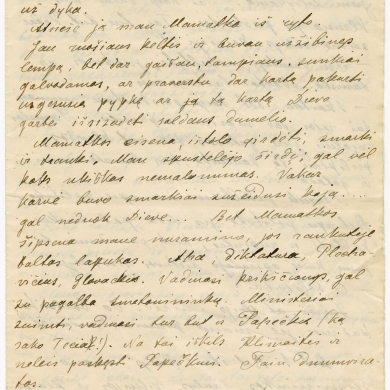 už dyka.
Atnešė ją man Mamatka iš ryto.
Jau mojaus keltis ir buvau užsidegęs
lempą, bet dar gaišau, tampiaus, sunkiai
galvodamas, ar praverstų dar kartą pakurti
užgesusią pypkę ar ją tą kartą Dievo
garbei išsirūkyti saldaus dūmelio.
Mamatkos eisena, ištolo girdėti, smarki
ir tranki. Man spustelėjo širdį: gal vėl
koks ūkiškas nemalonumas. Vakar
karvė buvo smarkiai susižeidusi koją...
gal neduok Dieve... Bet Mamatkos
šypsena mane nuramino, jos rankutėje
baltas lapukas. Aha, diktatura, Plecha-
vičius, Glovackis. Vadinasi krikščionys, gal
su pagalba smetonininkų. Ministeriai
suimti, vadinasi tur būt ir Papečkis (ką
sako Teciai?!). Na tai iškils Klimaitis ir
neleis paskęsti Papečkiui. Fain. Dummora-
tas.